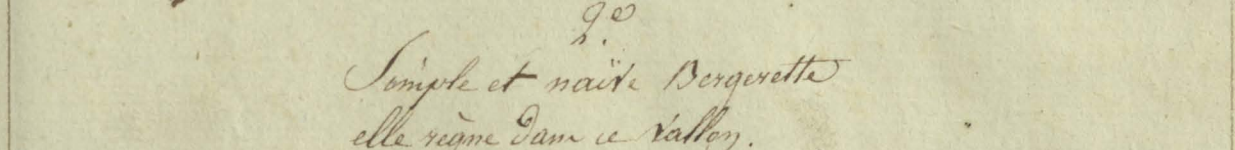 2e
Simple et naïve Bergerette
elle règne dans ce vallon.